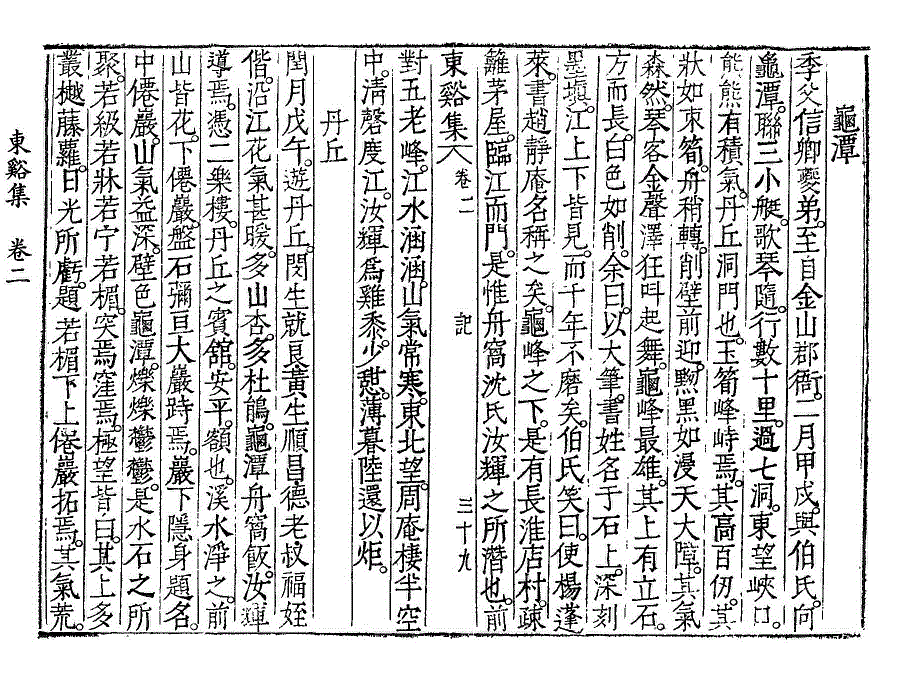 龜潭
季父信卿夔弟。至自金山郡衙。二月甲戍。與伯氏向
龜潭。聯三小艇。歌琴隨行數十里。過七洞。東望峽口。
熊熊有積氣。丹丘洞門也。玉筍峰峙焉。其高百仞。其
狀如束筍。舟稍轉。削壁前迎。黝黑如漫天大障。其氣
森然。琴客金聲澤狂叫起舞。龜峰最雄。其上有立石。
方而長。白色如削。余曰。以大筆。書姓名于石上。深刻
墨塡。江上下皆見。而千年不磨矣。伯氏笑曰。使楊蓬
萊。書趙靜庵名稱之矣。龜峰之下。是有長淮店村。疎
籬茅屋。臨江而門。是惟舟窩沈氏汝輝之所潛也。前
東谿集 卷二 記 三十九
對五老峰。江水涵涵。山氣常寒。東北望。周庵棲半空
中。淸磬度江。汝輝爲雞黍。少憇。薄暮陸還以炬。
丹丘
閏月戊午。遊丹丘。閔生就良黃生順昌德老叔福姪
偕。沿江花氣甚暖。多山杏。多杜鵑。龜潭舟窩飯。汝輝
導焉。憑二樂樓。丹丘之賓舘。安平。額也。溪水淨之。前
山皆花。下僊巖。盤石彌亘大巖跱焉。巖下隱身題名。
中僊巖。山氣益深。壁色龜潭。爍爍鬱鬱。是水石之所
聚。若級若牀若宁若楣。突焉。窪焉。極望皆白。其上多
叢樾藤蘿。日光所虧。題若楣下上僊巖拓焉。其氣荒。
東谿集 卷二